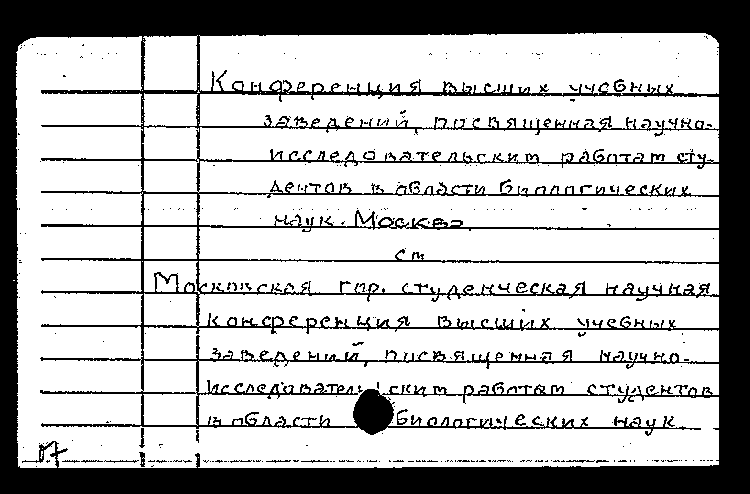 Конференция высших учебных
заведений, посвященная научно-
исследовательским работам сту-
дентов в области биологических
наук. Москва.
см
Московская гор. студенческая научная
конференция высших учебных
заведений, посвященная научно-
исследовательским работам студентов
в области биологических наук